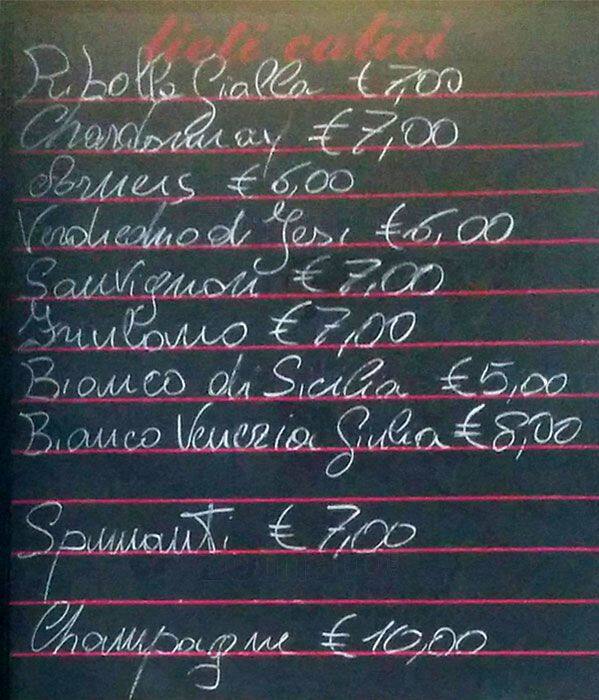 lieti calici
Ribolla Gialla €7,00
Chardonnay €7,00
Arneis €6,00
Verdicchio di Jesi €6,00
Sauvignon €7,00
Friulano €7,00
Bianco di Sicilia €5,00
Bianco Venezia Giulia €8,00
Spumanti €7,00
Champagne €10,00